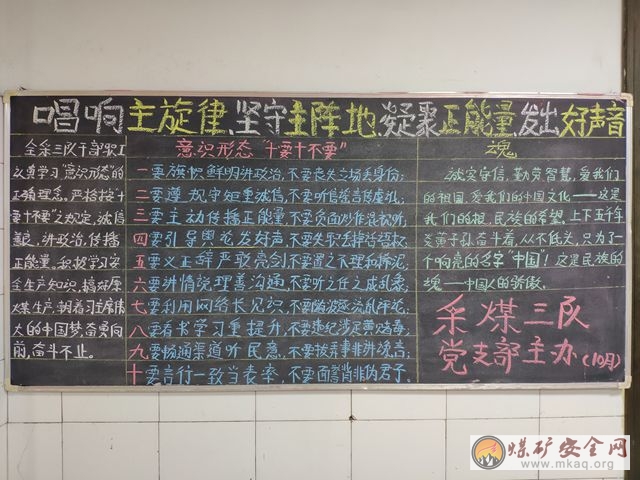 唱响主旋律,坚守主阵地,凝聚正能量,发出好声音
全采三队干部职工
认真学习"意识形态的"
正确理念。严格按"十
要十不要"之规定,诚信
善良,讲政治,传播
正能量。积极学习安
全生产知识,搞好原
煤生产,朝着习主席伟
大的中国梦奋勇向
前,奋斗不止。
意识形态"十要十不要"
一要旗帜鲜明讲政治,不要丧失立场丢身份;
二要遵规守矩重诚信,不要听信谣言传虚讹;
三要主动传播正能量,不要负面炒作混视听;
四要引导舆论发好声,不要失职
五要义正辞严敢亮剑,不要置之不理和稀泥;
六要讲情说理善沟通,不要听之任之成乱态;
七要利用网络长见识,不要随波逐流乱评论;
八要看书学习重提升,不要违纪涉足黄赌毒;
九要畅通渠道听民意,不要拨弄事非讲谎言;
十要言行一致当表率,不要面誉背非伪君子。
魂
诚实守信,勤劳智慧,爱我们
的祖国,爱我们的中国文化——这是
我们的根,民族的希望,上下五千年
炎黄子孙奋斗着,从不低头,只为了
个响亮的名字"中国!这是民族的
魂——中国人的骄傲。
采煤三队
党支部主办(10月)
煤矿安全网
www.mkaq.org